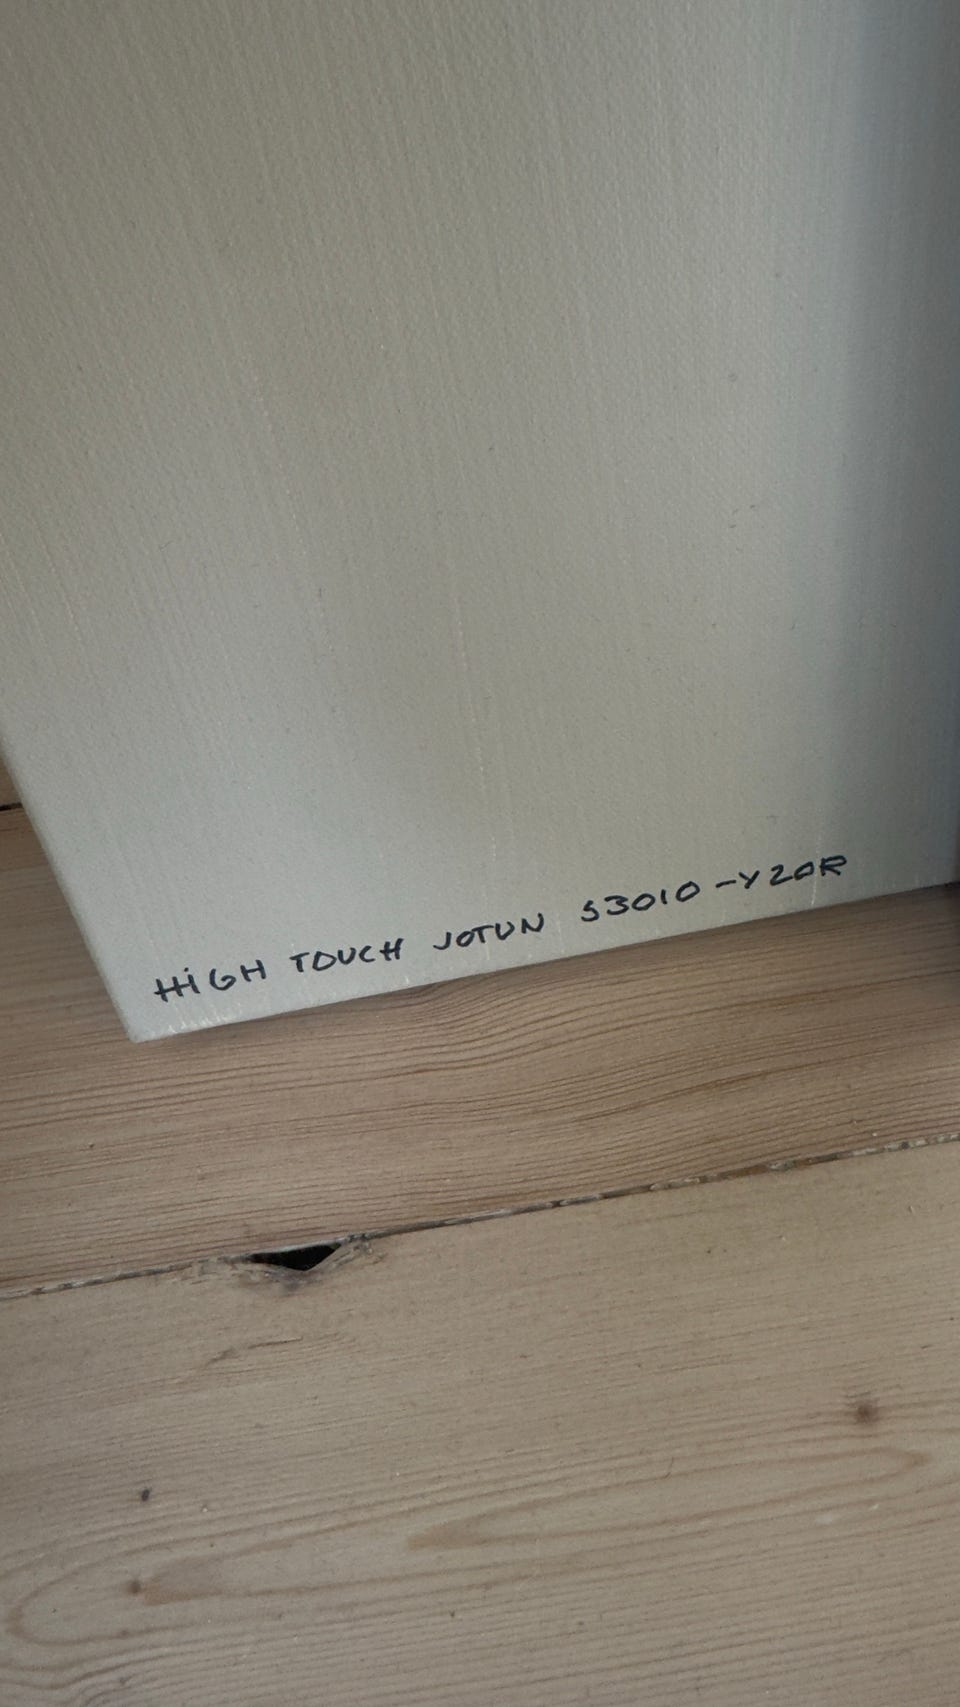 HiGH TOUCH JOTUN S3010-Y20R